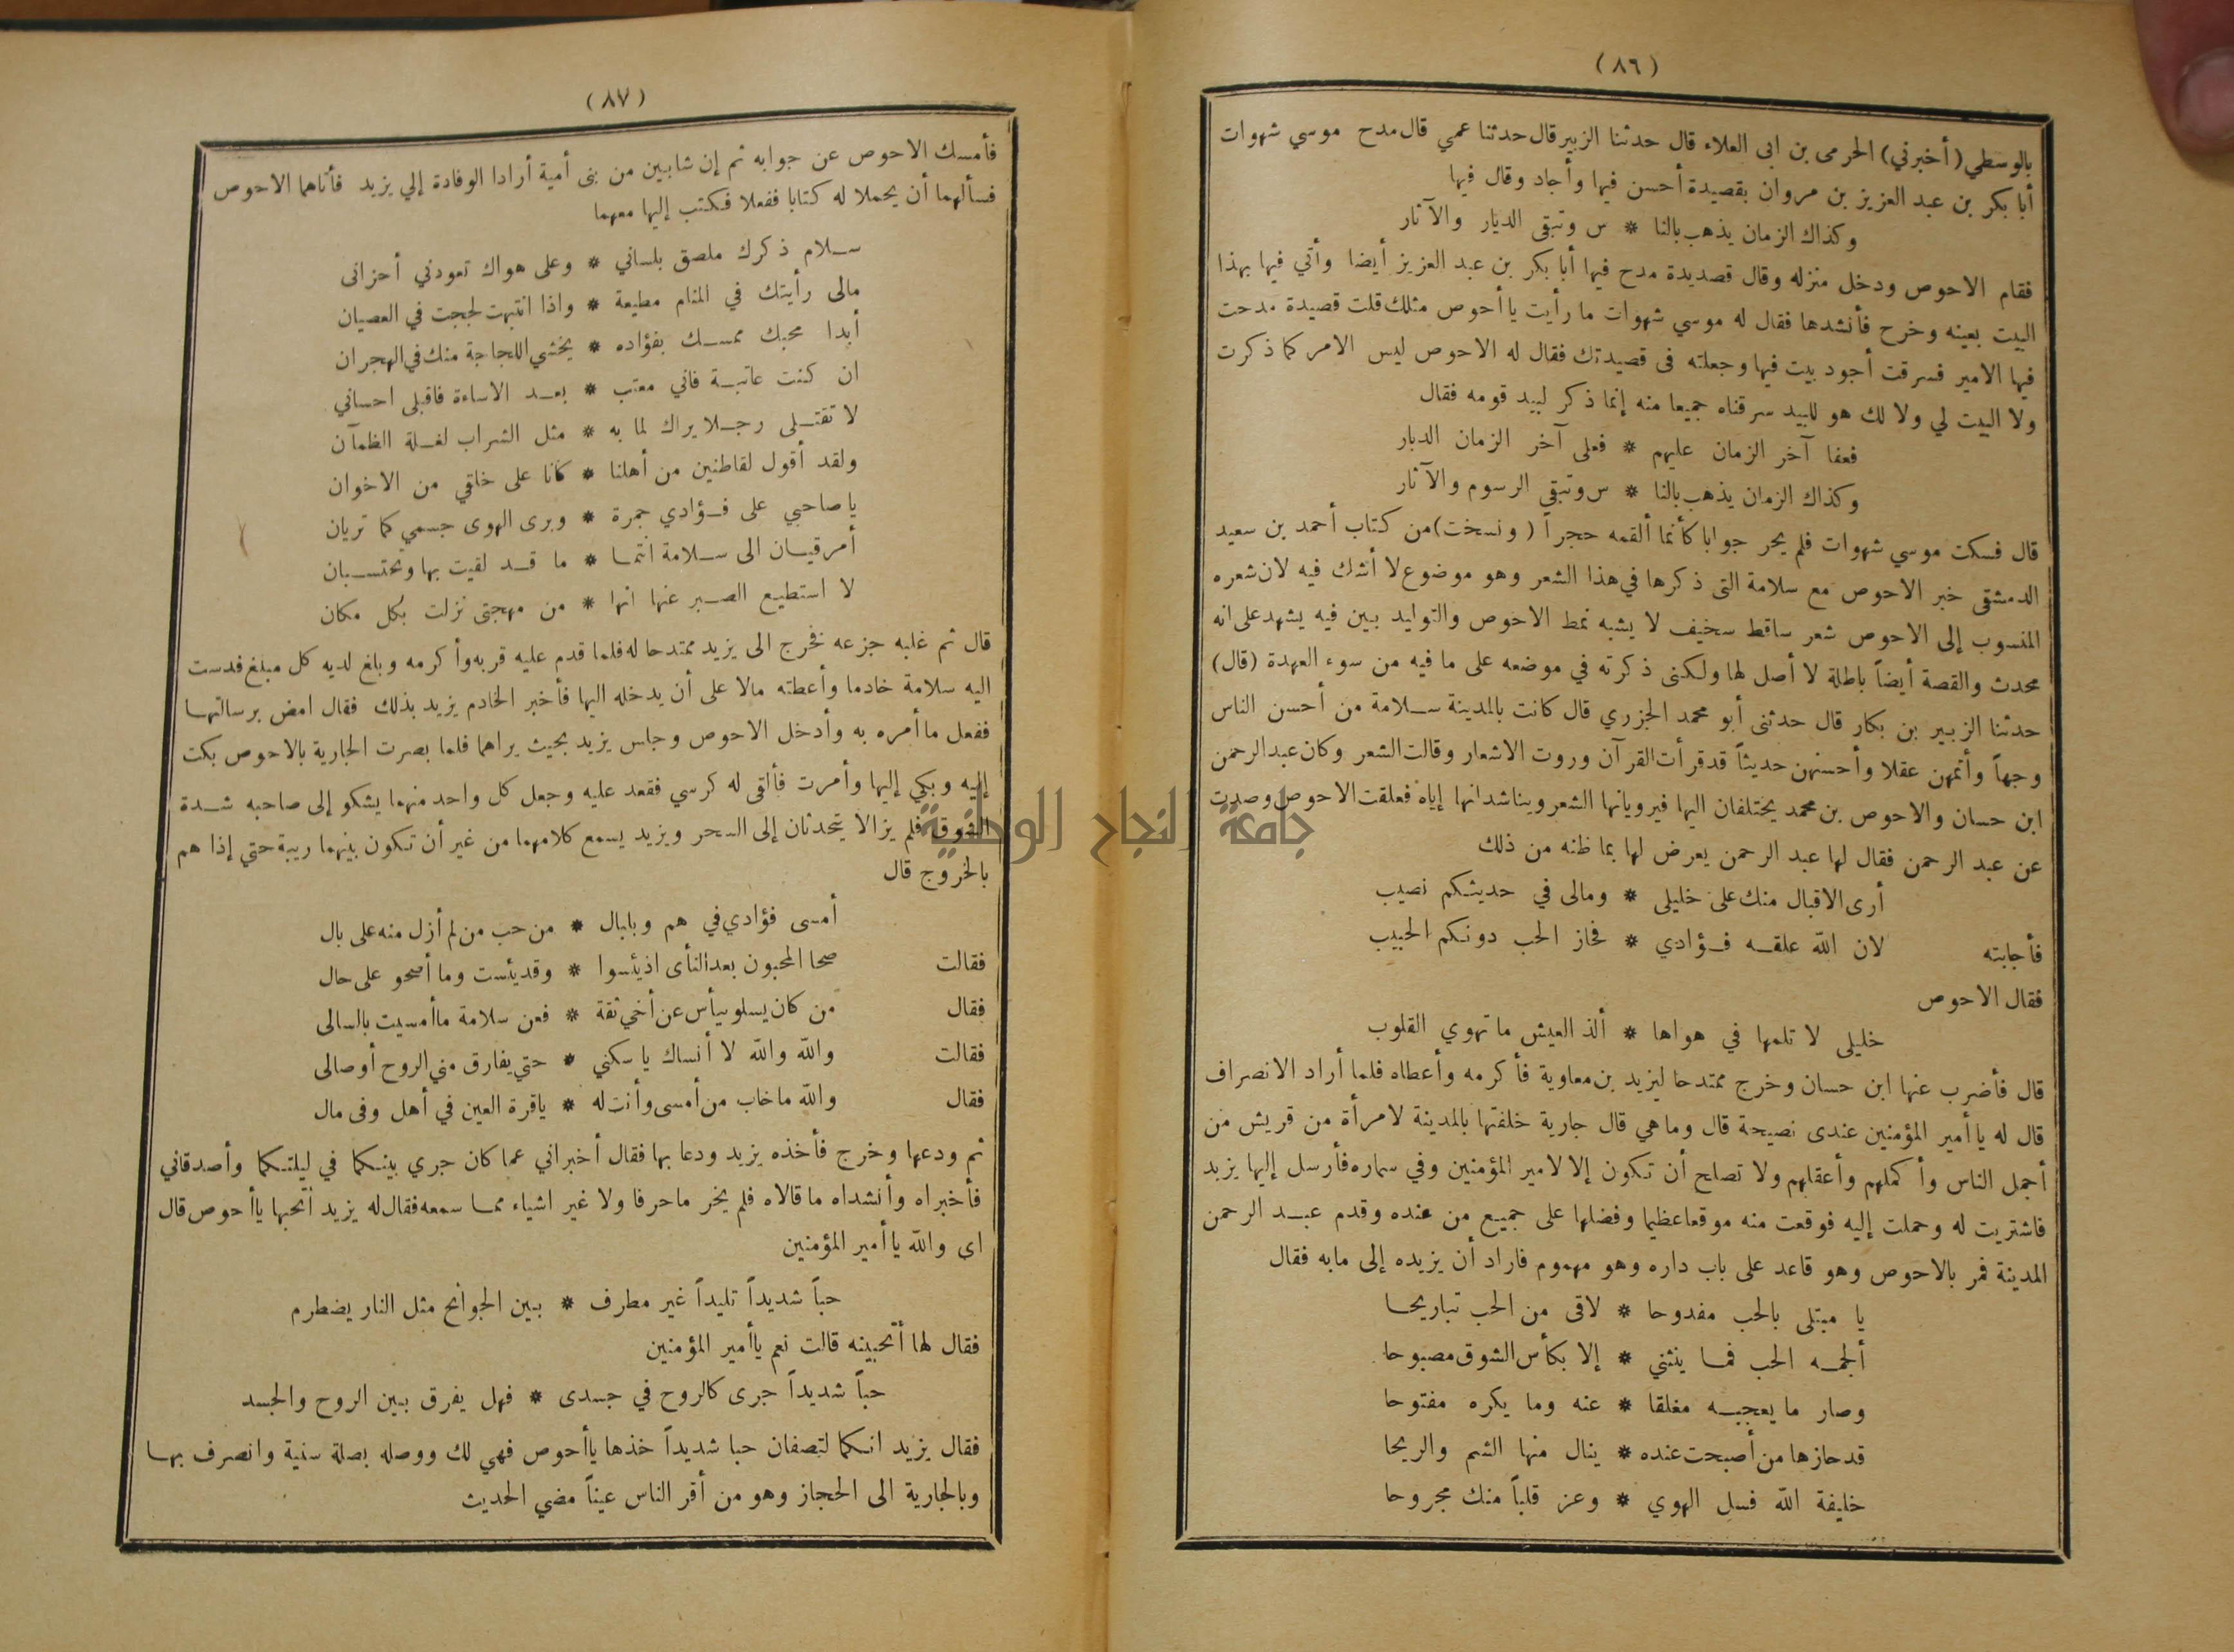 (٨٦)
بالوسطي (أخبرني) الحرمى بن ابى العلاء قال حدثنا الزبير قال حدثنا عمي قال مدح موسي شهوات
أبا بكر بن عبد العزيز بن مروان بقصيدة أحسن فيها وأجاد وقال فيها
وكذاك الزمان يذهب بالنا * س وتبقى الديار والآثار
فقام الاحوص ودخل منزله وقال قصديدة مدح فيها أبا بكر بن عبد العزيز أيضا وأتي فيها بهذا
البيت بعينه وخرج فأنشدها فقال له موسي شهوات ما رأيت يا أحوص مثلك قلت قصيدة مدحت
فيها الامير فسرقت أجود بيت فيها وجعلته فى قصيدتك فقال له الاحوص ليس الامر كما ذكرت
ولا البيت لي ولا لك هو للبيد سرقناه جميعا منه إنما ذكر لبيد قومه فقال
فعفا آخر الزمان عليهم * فعلى آخر الزمان الدبار
وكذاك الزمان يذهب بالنا * س وتبقي الرسوم والآثار
قال فسكت موسي شهوات فلم يحر جوابا كأنما ألقمه حجراً (ونسخت) من كتاب أحمد بن سعيد
الدمشقى خبر الاحوص مع سلامة التى ذكرها في هذا الشعر وهو موضوع لا أشك فيه لان شعره
المنسوب إلى الاحوص شعر ساقط سخيف لا يشبه نمط الاحوص والتوليد بين فيه يشهد على انه
محدث والقصة أيضاً باطلة لا أصل لها ولكنى ذكرته في موضعه على ما فيه من سوء العهدة (قال)
حدثنا الزبير بن بكار قال حدثنى أبو محمد الجزري قال كانت بالمدينة سلامة من أحسن الناس
وجهاً وأتمهن عقلا وأحسنهن حديثاً قد قرأت القرآن وروت الاشعار وقالت الشعر وكان عبد الرحمن
ابن حسان والاحوص بن محمد يختلفان اليها فيرويانها الشعر ويناشدانها إياه فعلقت الاحوص وصدت
عن عبد الرحمن فقال لها عبد الرحمن يعرض لها بما ظنه من ذلك
أرى الاقبال منك على خليلى * ومالى في حديثكم نصيب
فأجابته لان الله علقه فؤادي * فحاز الحب دونكم الحبيب
فقال الاحوص
خليلى لا تلمها في هواها * ألذ العيش ما تهوي القلوب
قال فأضرب عنها ابن حسان وخرج ممتدحا ليزيد بن معاوية فأكرمه وأعطاه فلما أراد الانصراف
قال له يا أمير المؤمنين عندى نصيحة قال وما هي قال جارية خلفتها بالمدينة لامرأة من قريش من
أجمل الناس وأكملهم وأعقلهم ولا تصلح أن تكون إلا لامير المؤمنين وفي سماره فأرسل إليها يزيد
فاشتريت له وحملت إليه فوقعت منه موقعا عظيما وفضلها على جميع من عنده وقدم عبد الرحمن
المدينة فمر بالاحوص وهو قاعد على باب داره وهو مهموم فاراد أن يزيده إلى مابه فقال
يا مبتلى بالحب مفدوحا * لاقى من الحب تباريحا
ألجمه الحب فما ينثني * إلا بكأس الشوق مصبوحا
وصار ما يعجبه مغلقا * عنه وما يكره مفتوحا
قد حازها من أصبحت عنده * ينال منها الشم والريحا
خليفة الله فسل الهوي * وعز قلباً منك مجروحا
(٨٧)
فأمسك الاحوص عن جوابه ثم إن شابين من بنى أمية أرادا الوفادة إلي يزيد فأتاهما الاحوص
فسألهما أن يحملا له كتابا ففعلا فكتب إليها معهما
سلام ذكرك ملصق بلساني * وعلى هواك تعودني أحزانى
مالى رأيتك في المنام مطيعة * واذا انتبهت لججت في العصيان
أبدا محبك ممسك بفؤاده * يخشي اللجاجة منك في الهجران
ان كنت عاتبة فاني معتب * بعد الاساءة فاقبلى احساني
لا تقتلى رجلا يراك لما به * مثل الشراب لغلة الظمآن
ولقد أقول لقاطنين من أهلنا * كانا على خلقي من الاخوان
يا صاحبي على فؤادي جمرة * وبرى الهوى جسمي كما تريان
أمرقيان الى سلامة انتما * ما قد لقيت بها وتحتسبان
لا استطيع الصبر عنها انها * من مهجتى نزلت بكل مكان
قال ثم غلبه جزعه فخرج الى يزيد ممتدحا له فلما قدم عليه قربه وأكرمه وبلغ لديه كل مبلغ فدست
اليه سلامة خادما وأعطته مالا على أن يدخله اليها فأخبر الخادم يزيد بذلك فقال امض برسالتها
ففعل ما أمره به وأدخل الاحوص وجلس يزيد بحيث يراهما فلما بصرت الجارية بالاحوص بكت
إليه وبكي إليها وأمرت فألقى له كرسي فقعد عليه وجعل كل واحد منهما يشكو إلى صاحبه شدة
الشوق فلم يزالا يتحدثان إلى السحر ويزيد يسمع كلامهما من غير أن تكون بينهما ريبة حتي إذا هم
بالخروج قال
أمسى فؤادي في هم وبلبال * من حب من لم أزل منه على بال
فقالت صحا المحبون بعد النأى اذ يئسوا * وقد يئست وما أصحو على حال
فقال من كان يسلو بيأس عن أخي ثقة * فعن سلامة ما أمسيت بالسالى
فقالت والله والله لا أنساك يا سكني * حتي يفارق مني الروح أوصالى
فقال والله ما خاب من أمسى وأنت له * يا قرة العين في أهل وفى مال
ثم ودعها وخرج فأخذه يزيد ودعا بها فقال أخبراني عما كان جري بينكما في ليلتكما وأصدقاني
فأخبراه وأنشداه ما قالاه فلم يخر ما حرفا ولا غير اشياء مما سمعه فقال له يزيد أتحبها يا أحوص قال
اى والله يا أمير المؤمنين
حباً شديداً تليداً غير مطرف * بين الجوانح مثل النار يضطرم
فقال لها أتحبينه قالت نعم يا أمير المؤمنين
حباً شديداً جرى كالروح في جسدى * فهل يفرق بين الروح والجسد
فقال يزيد انكما لتصفان حبا شديداً خذها يا أحوص فهي لك ووصله بصلة سنية وانصرف بها
وبالجارية الى الحجاز وهو من أقر الناس عيناً مضي الحديث
جامعة النجاح الوطنية